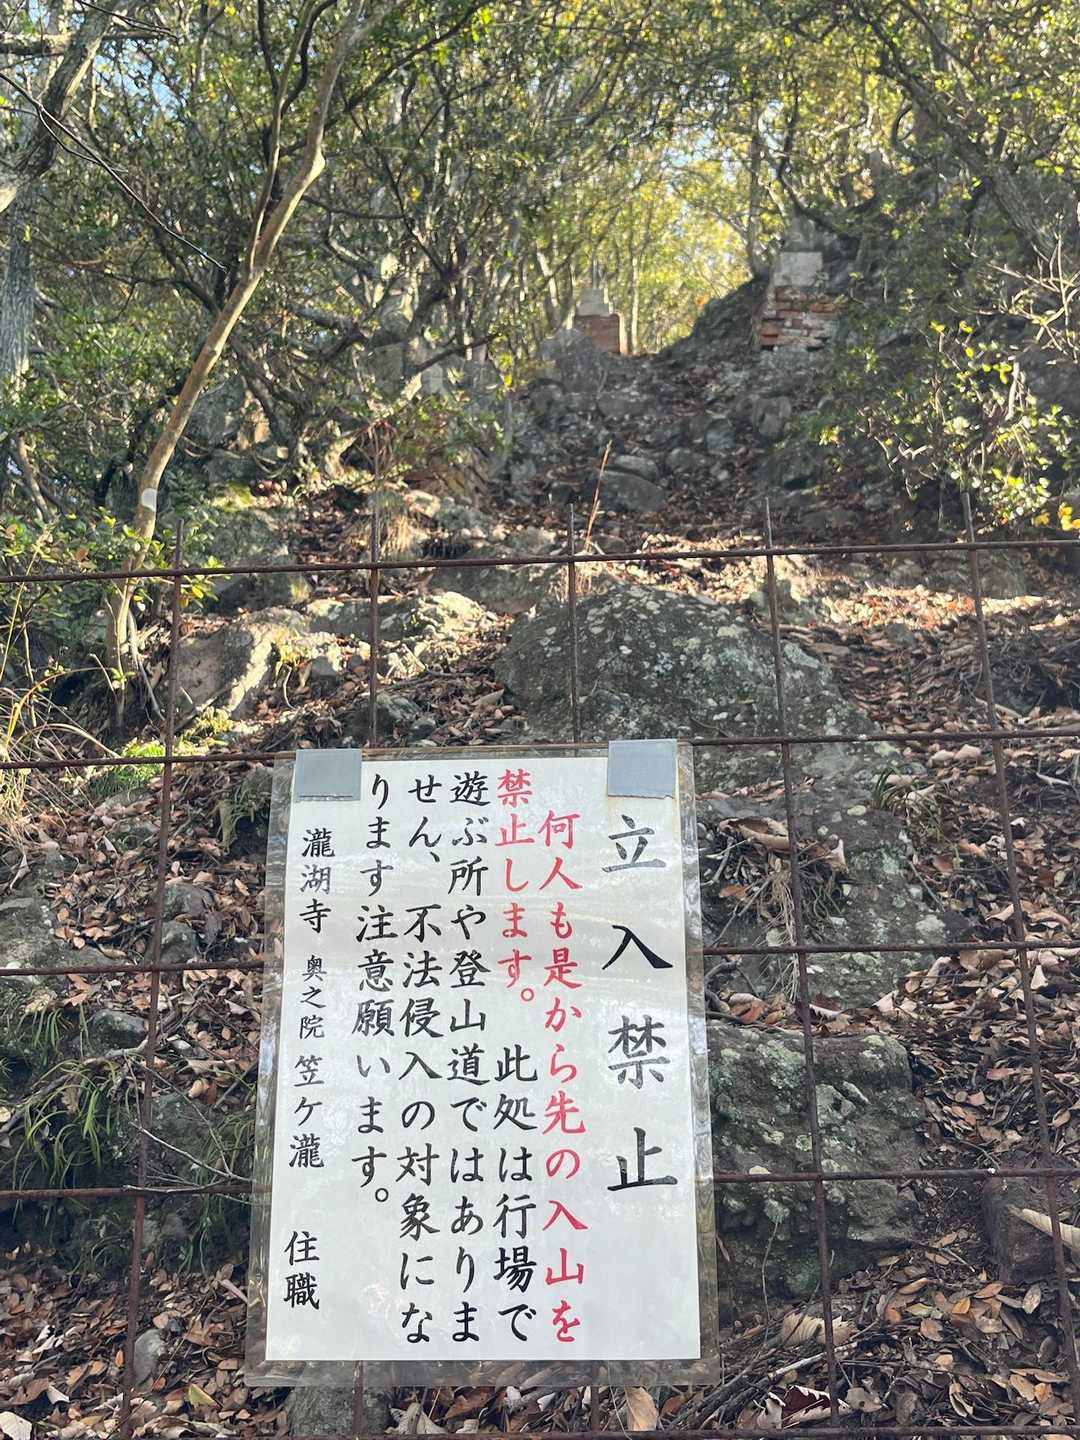 立入禁止
何人も是から先の入山を
禁止します。此処は行場で
遊ぶ所や登山道ではありま
せん、不法侵入の対象にな
ります注意願います。
瀧湖寺 奥之院 笠ケ瀧 住職